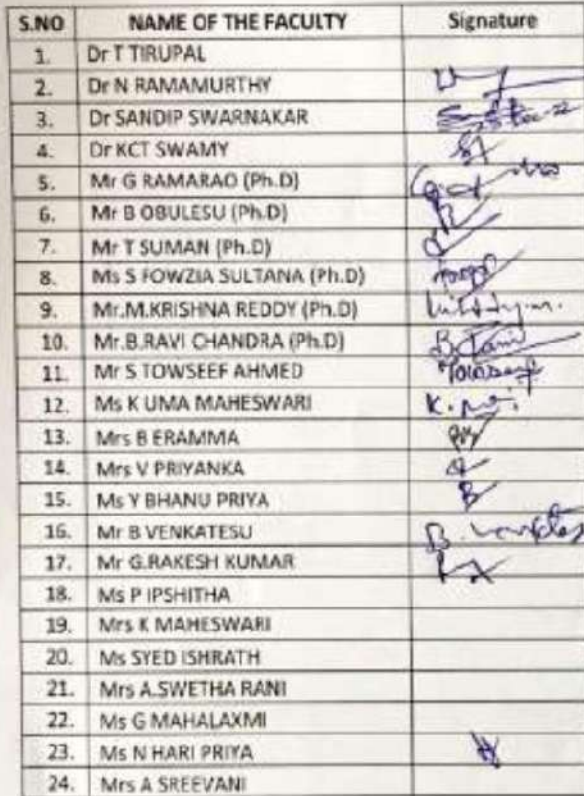 S.NO NAME OF THE FACULTY Signature
1. Dr T TIRUPAL
2. Dr N RAMAMURTHY
3. Dr SANDIP SWARNAKAR
4. Dr KCT SWAMY
5. Mr G RAMARAO (Ph.D)
6. Mr B OBULESU (Ph.D)
7. Mr T SUMAN (Ph.D)
8. Ms S FOWZIA SULTANA (Ph.D)
9. Mr.M.KRISHNA REDDY (Ph.D)
10. Mr.B.RAVI CHANDRA (Ph.D)
11. Mr S TOWSEEF AHMED Towseef
12. Ms K UMA MAHESWARI
13. Mrs B ERAMMA
14. Mrs V PRIYANKA
15. Ms Y BHANU PRIYA
16. Mr B VENKATESU
17. Mr G.RAKESH KUMAR
18. Ms P IPSHITHA
19. Mrs K MAHESWARI
20. Ms SYED ISHRATH
21. Mrs A.SWETHA RANI
22. Ms G MAHALAXMI
23. Ms N HARI PRIYA
24. Mrs A SREEVANI